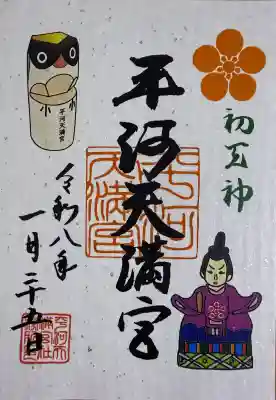 初天神
平河天満宮
平河
天満宮
平河天満宮
令和八年
一月二十五日